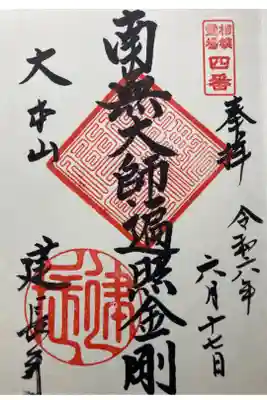 四番
奉拝
令和六年
六月十七日
南無大師遍照金剛
大本山
建長寺